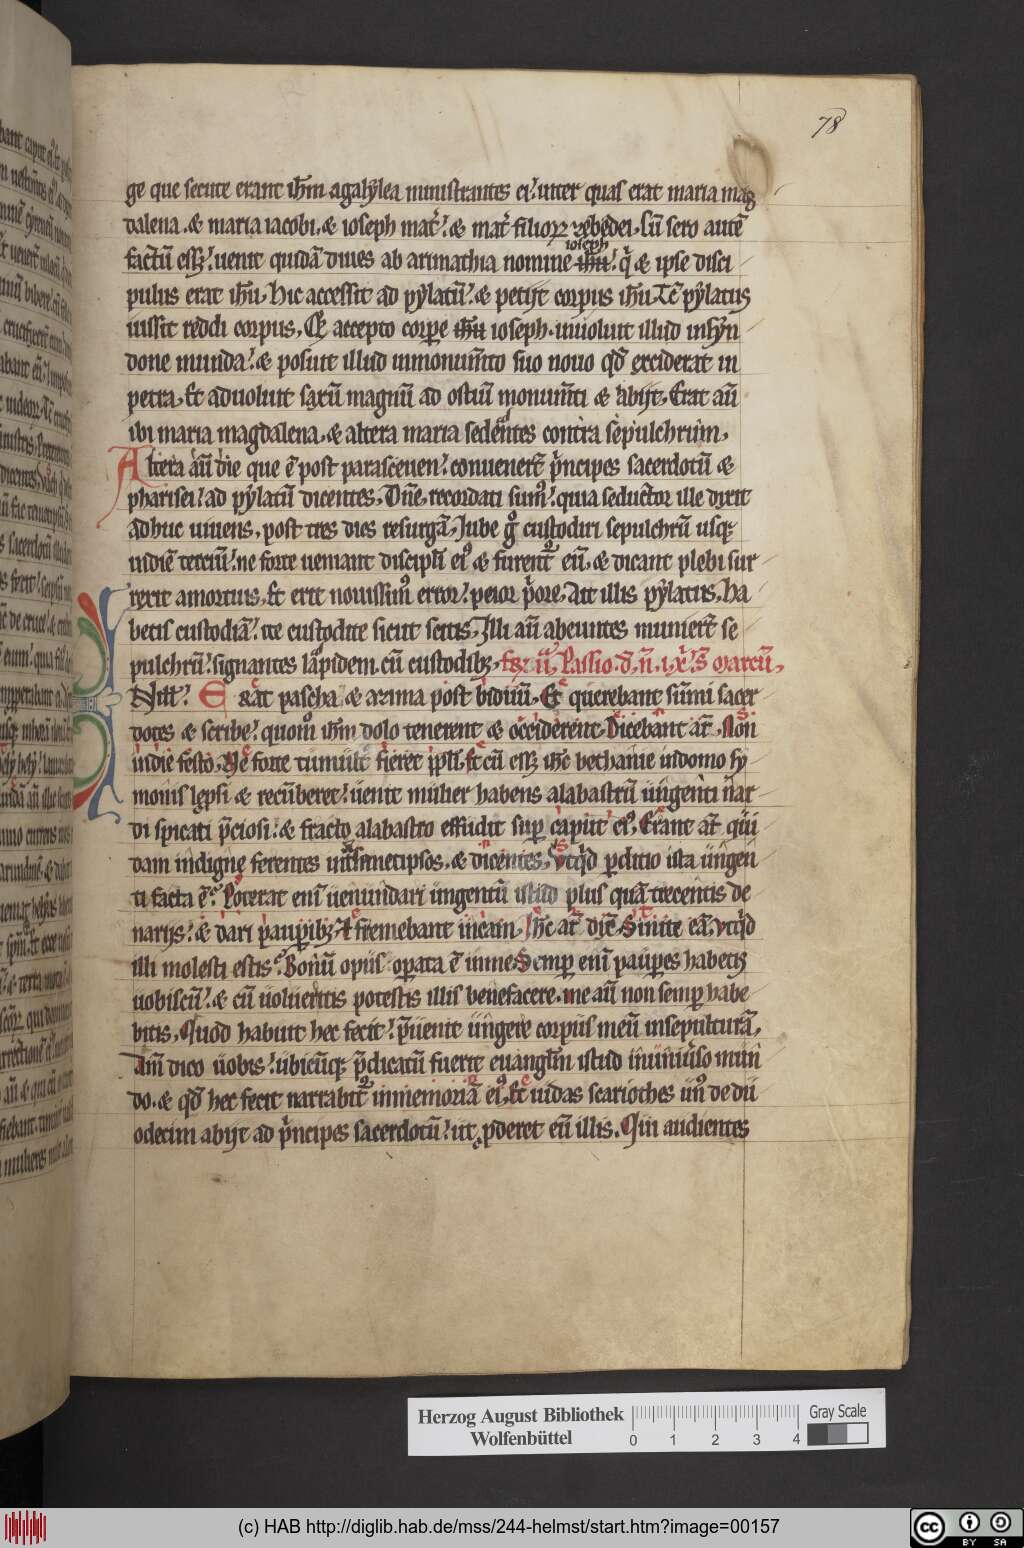 78
ge que secute erant ihm agalẏlea ministrantes ei. inter quas erat maria mag
dalena. & maria iacobi. & ioseph mat̉. & mat̉ filioꝝ zebedei. Cū sero autē
ioseph
factū essꝫ. uenit quidā diues ab arimathia nomine ihu. q̇ & ipse disci
pulus erat ihū. hic accessit ad pẏlatū. & petijt corpus ihū. Tc̄ pẏlatus
iussit reddi corpus. Et accepto corpe ihū ioseph. inuoluit illud insẏn
done munda. & posuit illud inmonumto suo nouo qd̄ exciderat in
petra. Et aduoluit saxū magnū ad ostiū monumti & abijt. Erat aū
ibi maria magdalena. & altera maria sedentes contra sepulchrum.
Altera aū die que ē post parasceuen. conuenert p̉ncipes sacerdotū &
pharisei. ad pẏlatū dicentes. Dn̄e. recordati sum᷒. quia seductor ille dixit
adhuc uiuens. post tres dies resurgā. Iube g̊ custodiri sepulchrū usqꝫ
indiē terciū. ne forte ueniant discipli ei᷒ & furent᷑ eū. & dicant plebi sur
rexit amortuis. Et erit nouissim᷒ error. peior p̉ore. Ait illis pẏlatus. ha
betis custodiā. ite custodite sicut scitis. Illi aū abeuntes muniert̄ se
pulchrū. signantes lapidem. cū custodibꝫ. Passio. d. n̄. s̄ marcū.
Nill. Erat pascha & azima post biduū. Et querebant sūmi sacer
dotes & scribe. quom᷒ ihm dolo tenerent & occiderent. Dicebant at̄. Non
indie festo. Ne forte tumult᷒ fieret ppli. Et cū essꝫ ihc bethanie indomo sẏ
monis lepsi & recūberet. uenit mulier habens alabastrū ungenti nar
di spicati p̄ciosi. & fracto alabastro effudit sup caput ei᷒. Erant at̄ qui
dam indigne ferentes int̉ semetipsos. & dicentes. Vtqd̄ pditio ista ungen
ti facta ē. Poterat eni uenundari ungentū istud plus quā trecentis de
narijs. & dari paupibꝫ. Et fremebant in eam. Ihc at̄ dix̄. Sinite eā. vtqd̄
illi molesti estis. Bonū opus opata ē inme. Semp eni paupes habetis
uobiscū. & cū uolueritis potestis illis benefacere. me aū non semp habe
bitis. Quod habuit hec fecit. p̄uenit ungere corpus meū insepulturā.
Am̄ dico uobis. ubicūqꝫ p̄dicatū fuerit euanglm istud inuniuso mun
do. & qd̄ hec fecit narrabit᷑ inmemoriā ei᷒. Et iudas scariothes un᷒ de du
odecim abijt ad p̉ncipes sacerdotū. ut pderet eū illis. Qui audientes
Herzog August Bibliothek
Wolfenbüttel
0 1 2 3 4
Gray Scale
(c) HAB http://diglib.hab.de/mss/244-helmst/start.htm?image=00157
cc BY SA